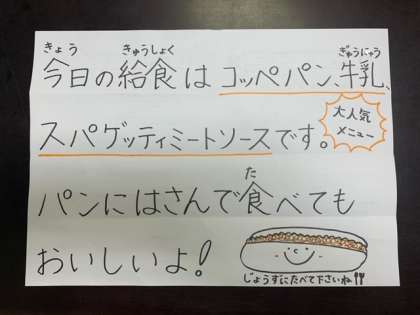 きょう きゅうしょく ぎゅうにゅう
今日の給食は コッペパン、牛乳、
大人気
メニュー
スパゲッティミートソースです。
た
パンにはさんで食べても
おいしいよ!
じょうずにたべて下さいね